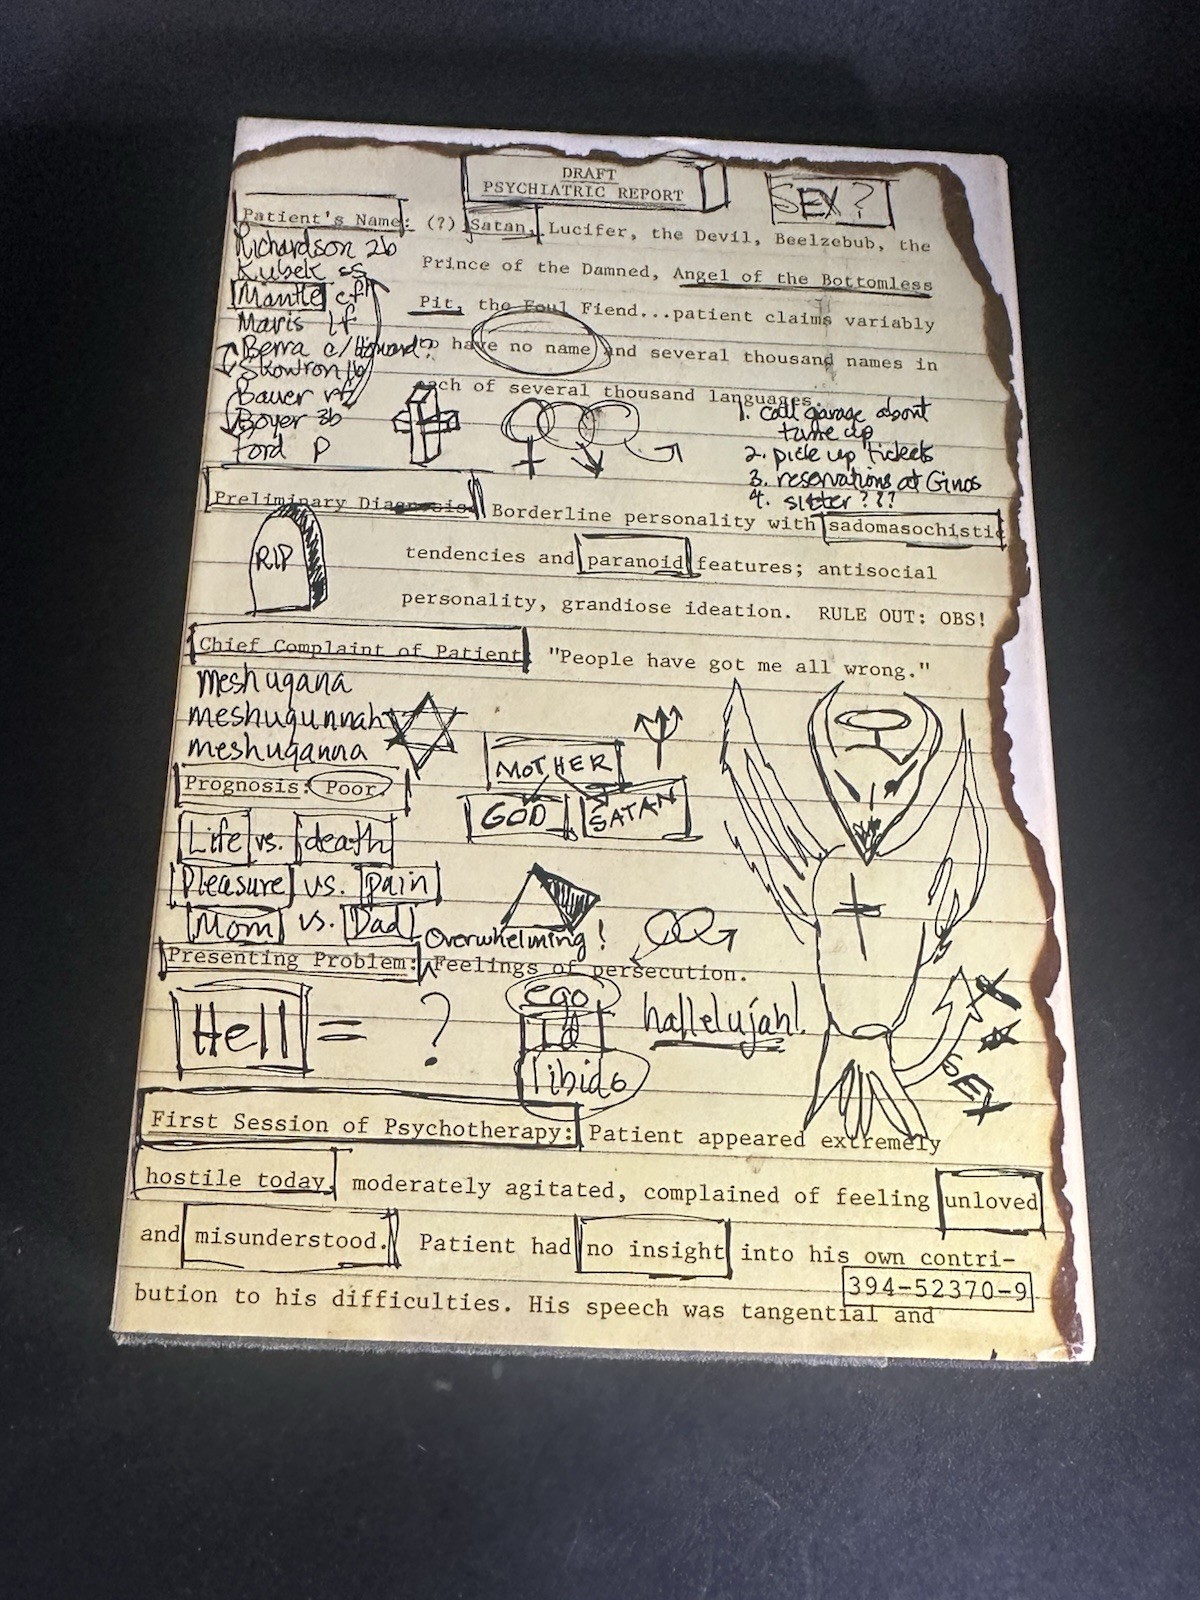 DRAFT
PSYCHIATRIC REPORT
SEX?
Patient's Name: (?) Satan, Lucifer, the Devil, Beelzebub, the
Prince of the Damned, Angel of the Bottomless
Pit, the Foul Fiend...patient claims variably
to have no name and several thousand names in
each of several thousand languages.
Richardson 2b
Kubek ss
Mantle cf
Maris lf
Berra c/Howard?
Skowron 1b
Bauer rf
Boyer 3b
Ford p
1. call garage about
tune up
2. pick up tickets
3. reservations at Ginos
4. sitter???
Preliminary Diagnosis: Borderline personality with sadomasochistic
tendencies and paranoid features; antisocial
personality, grandiose ideation. RULE OUT: OBS!
RIP
Chief Complaint of Patient: "People have got me all wrong."
meshugana
meshugunnah
meshuganna
MOTHER
GOD SATAN
Prognosis: Poor
Life vs. death
Pleasure vs. pain
Mom vs. Dad
Overwhelming!
Presenting Problem: Feelings of persecution.
Hell = ?
ego
Id
libido
hallelujah!
SEX
First Session of Psychotherapy: Patient appeared extremely
hostile today, moderately agitated, complained of feeling unloved
and misunderstood. Patient had no insight into his own contri-
bution to his difficulties. His speech was tangential and
394-52370-9